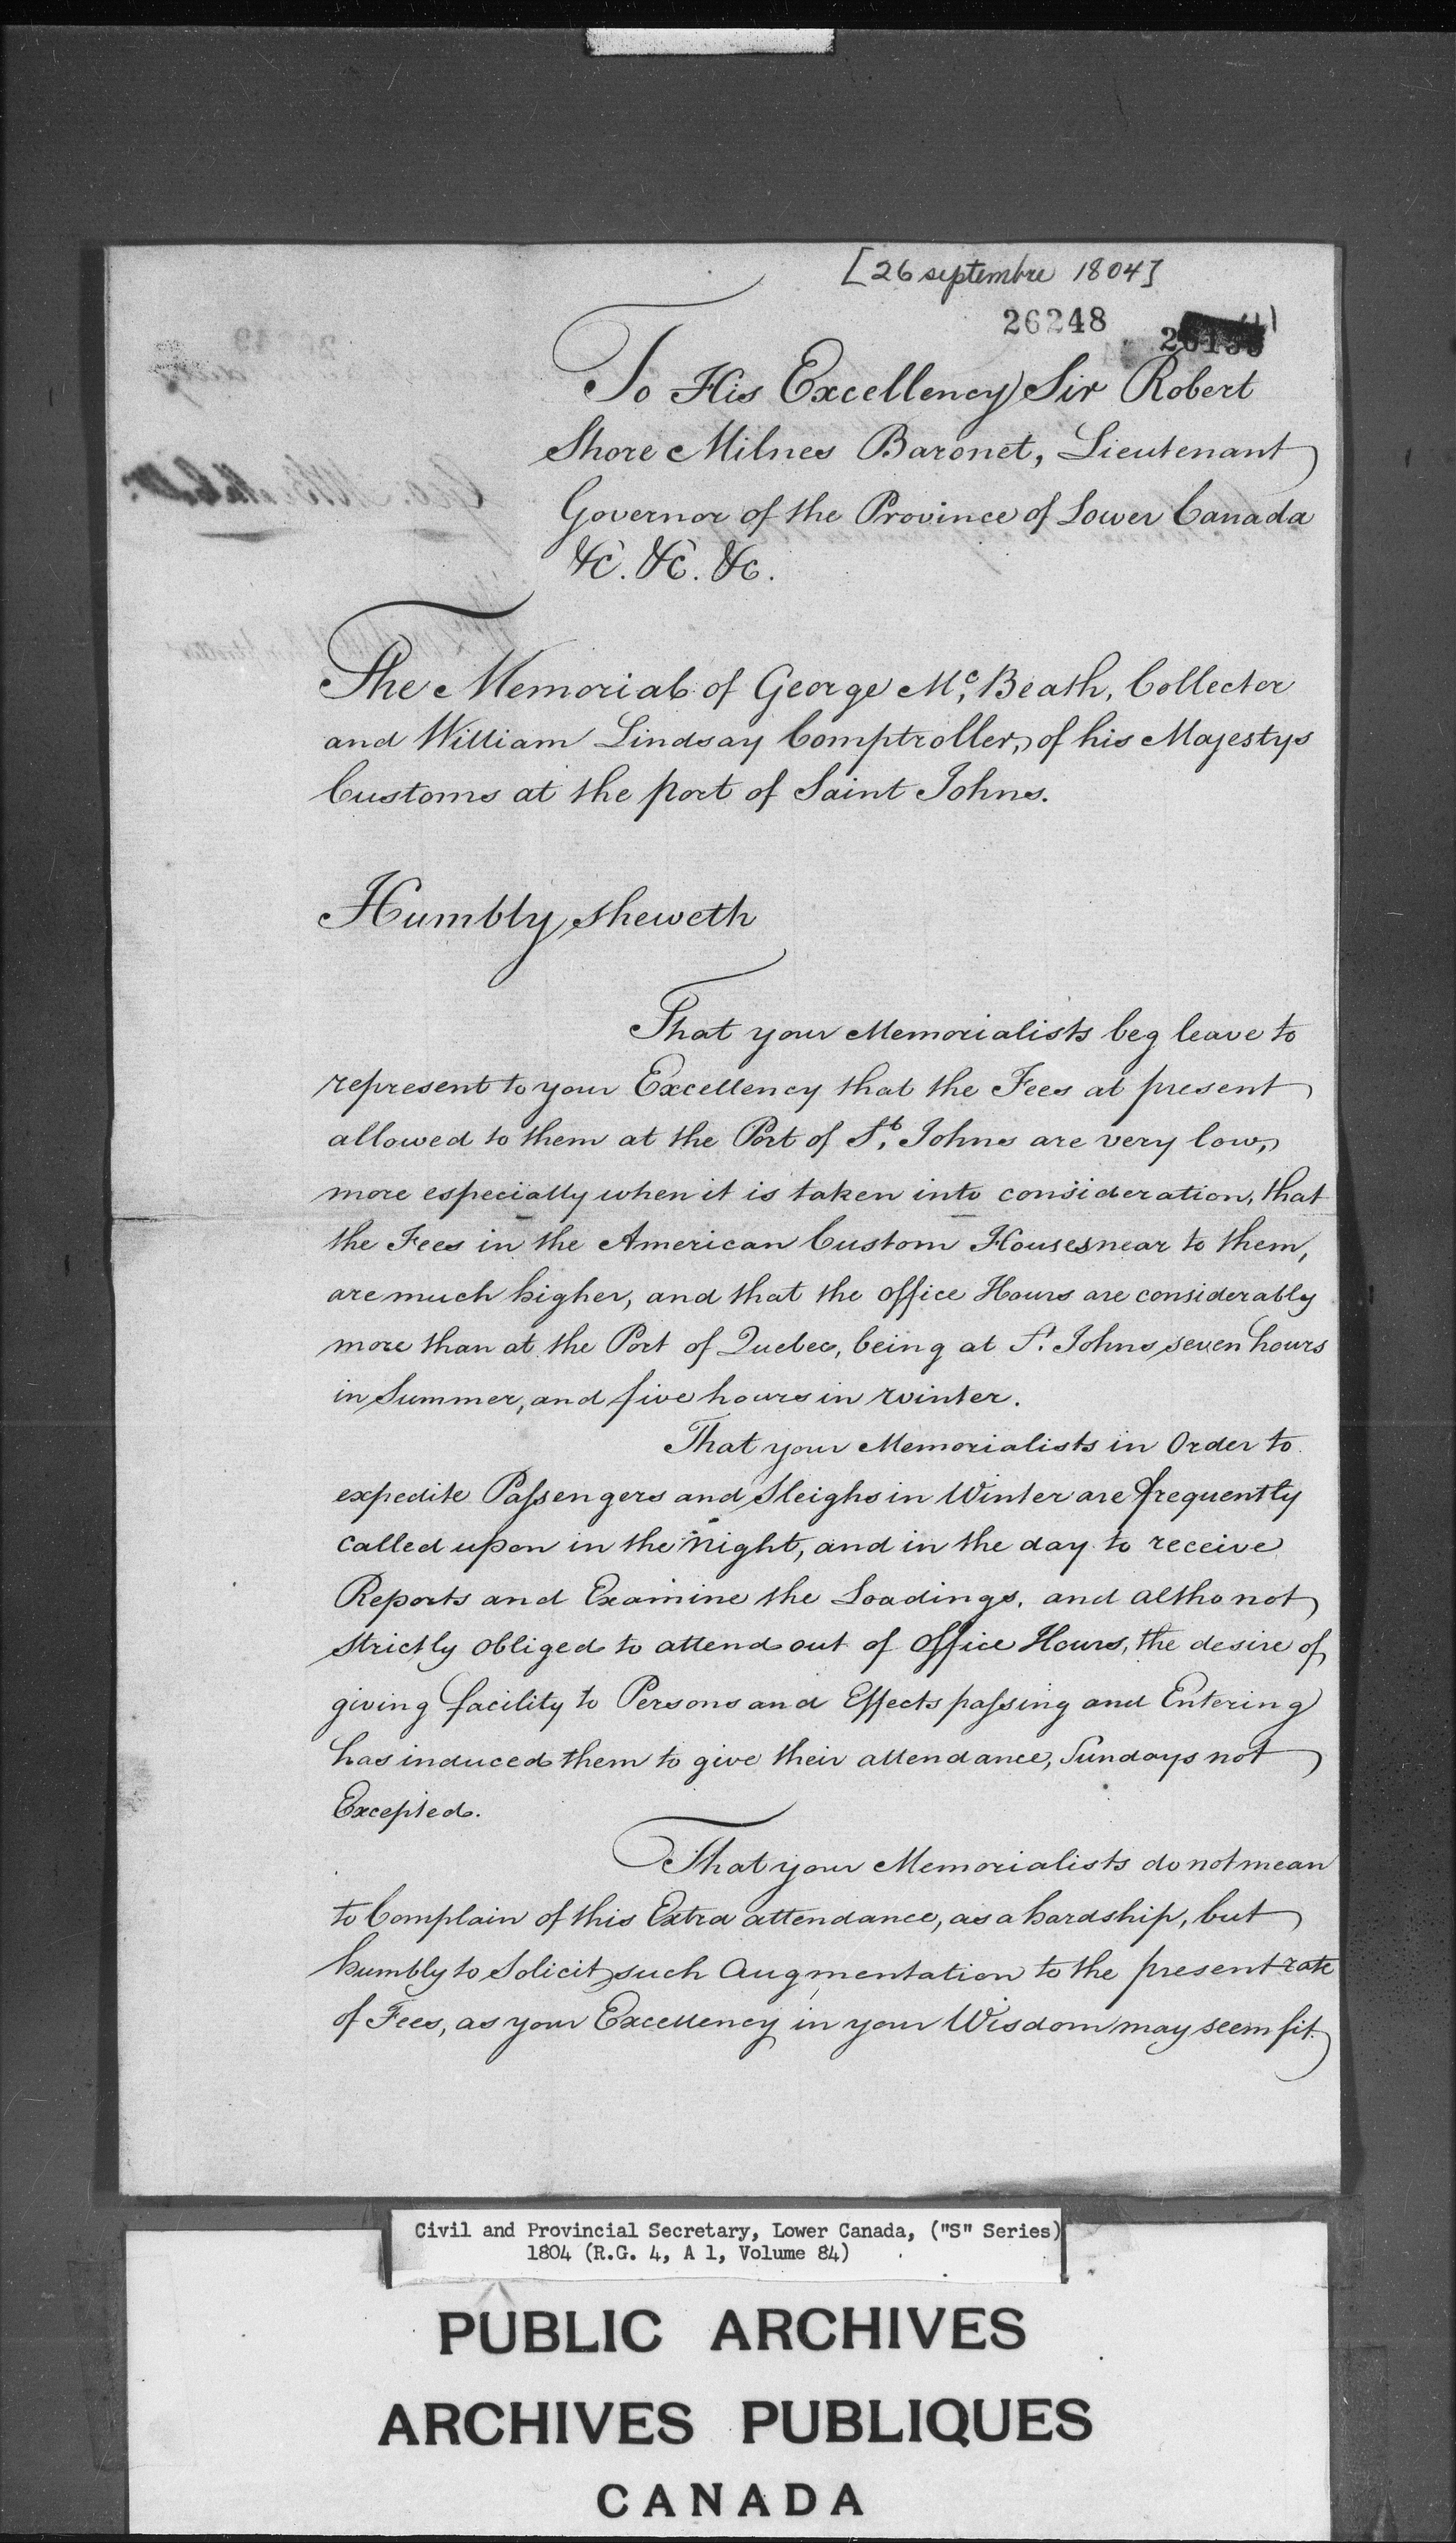 [26 septembre 1804]
26248
To His Excellency Sir Robert
Shore Milnes Baronet, Lieutenant
Governor of the Province of Lower Canada
&c. &c. &c.
The Memorial of George Mc. Beath, Collector
and William Lindsay Comptroller, of his Majestys
Customs at the port of Saint Johns.
Humbly sheweth
That your Memorialists beg leave to
represent to your Excellency that the Fees at present
allowed to them at the Port of St. Johns are very low,
more especially when it is taken into consideration, that
the Fees in the American Custom Houses near to them,
are much higher, and that the office Hours are considerably
more than at the Port of Quebec, being at St. Johns seven hours
in Summer, and five hours in winter.
That your Memorialists in Order to
expedite Passengers and Sleighs in Winter are frequently
called upon in the Night, and in the day to receive
Reports and Examine the Loadings, and altho not
strictly obliged to attend out of office Hours, the desire of
giving facility to Persons and Effects passing and Entering
has induced them to give their attendance, Sundays not
Excepted.
That your Memorialists do not mean
to Complain of this Extra attendance, as a hardship, but
humbly to Solicit such augmentation to the present rate
of Fees, as your Excellency in your Wisdom may seem fit.
Civil and Provincial Secretary, Lower Canada, ("S" Series)
1804 (R.G. 4, A 1, Volume 84)
PUBLIC ARCHIVES
ARCHIVES PUBLIQUES
CANADA